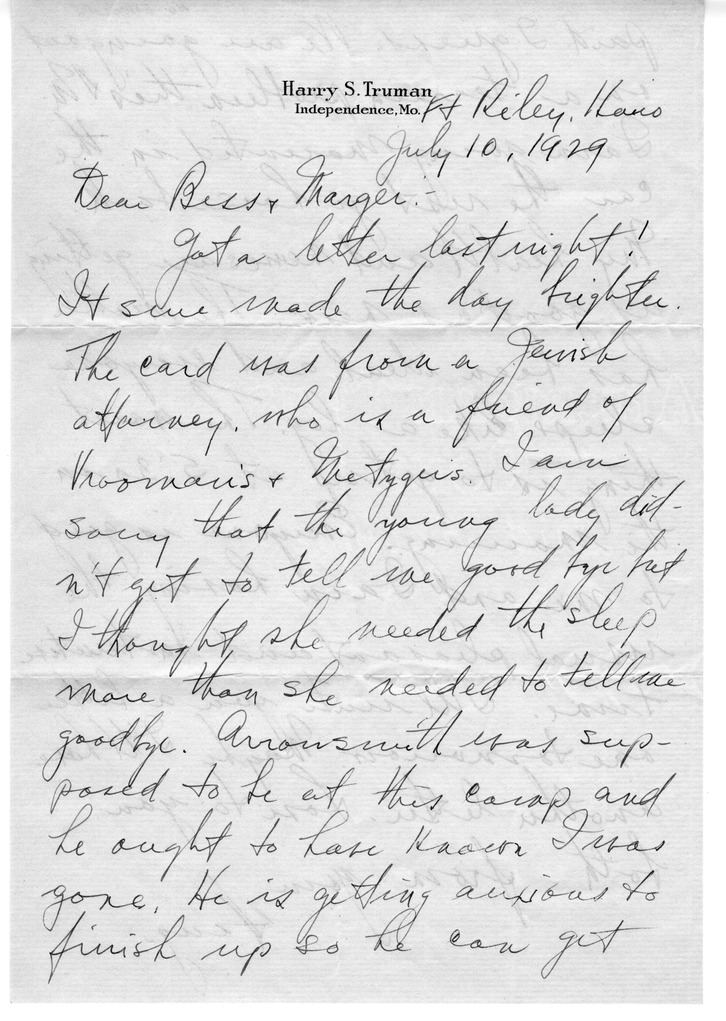 Harry S. Truman
Independence, Mo.
Ft Riley, Kans
July 10, 1929
Dear Bess & Margie:-
Got a letter last night!
It sure made the day brighter.
The card was from a Jewish
attorney, who is a friend of
Vrooman's & Metzger's. I am
sorry that the young lady did-
n't get to tell me good bye but
I thought she needed the sleep
more than she needed to tell me
goodbye. Arrowsmith was sup-
posed to be at this camp and
he ought to have known I was
gone. He is getting anxious to
finish up so he can get